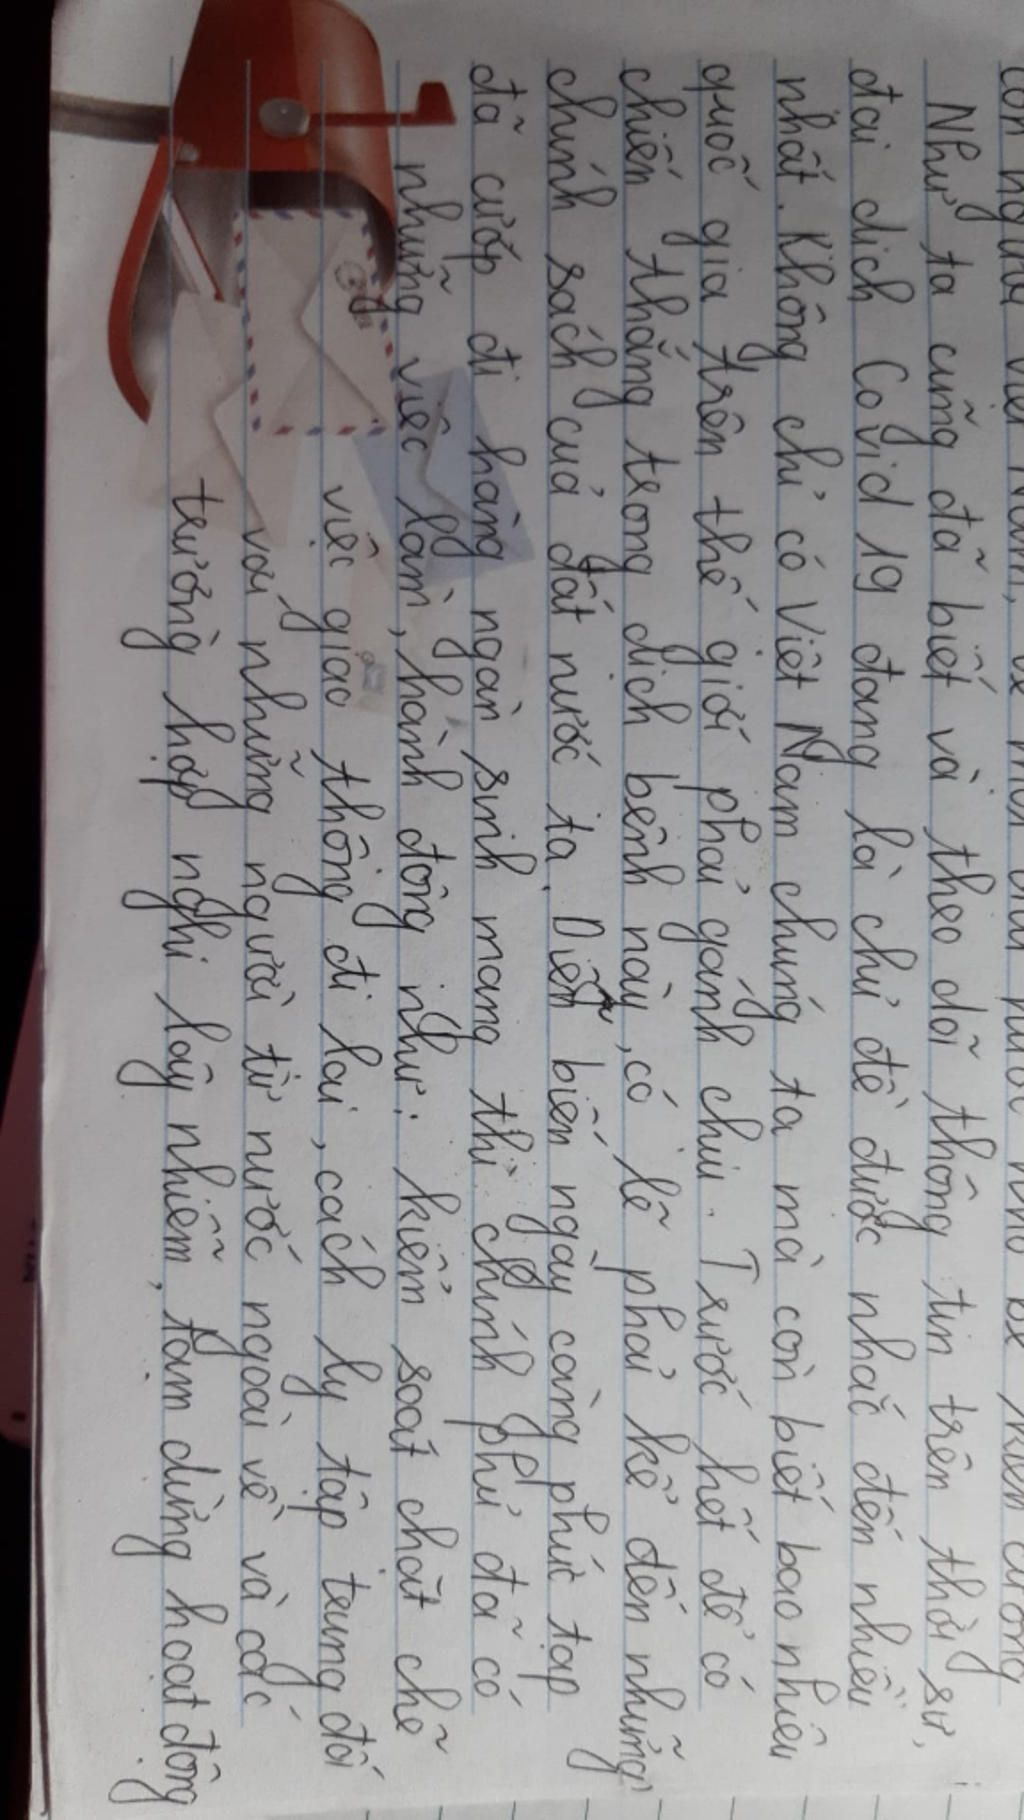 Như ta cũng đã biết và theo dõi thông tin trên thời sự,
đại dịch Covid 19 đang là chủ đề được nhắc đến nhiều
nhất. Không chỉ có Việt Nam chúng ta mà còn biết bao nhiêu
quốc gia trên thế giới phải gánh chịu. Trước hết để có
chiến thắng trong dịch bệnh này, có lẽ phải kể đến những
chính sách của đất nước ta. Diễn biến ngày càng phức tạp
đã cướp đi hàng ngàn sinh mạng thì chính phủ đã có
những việc làm, hành động như: kiểm soát chặt chẽ
việc giao thông đi lại, cách ly tập trung đối
với những người từ nước ngoài về và các
trường hợp nghi lây nhiễm, tạm dừng hoạt động